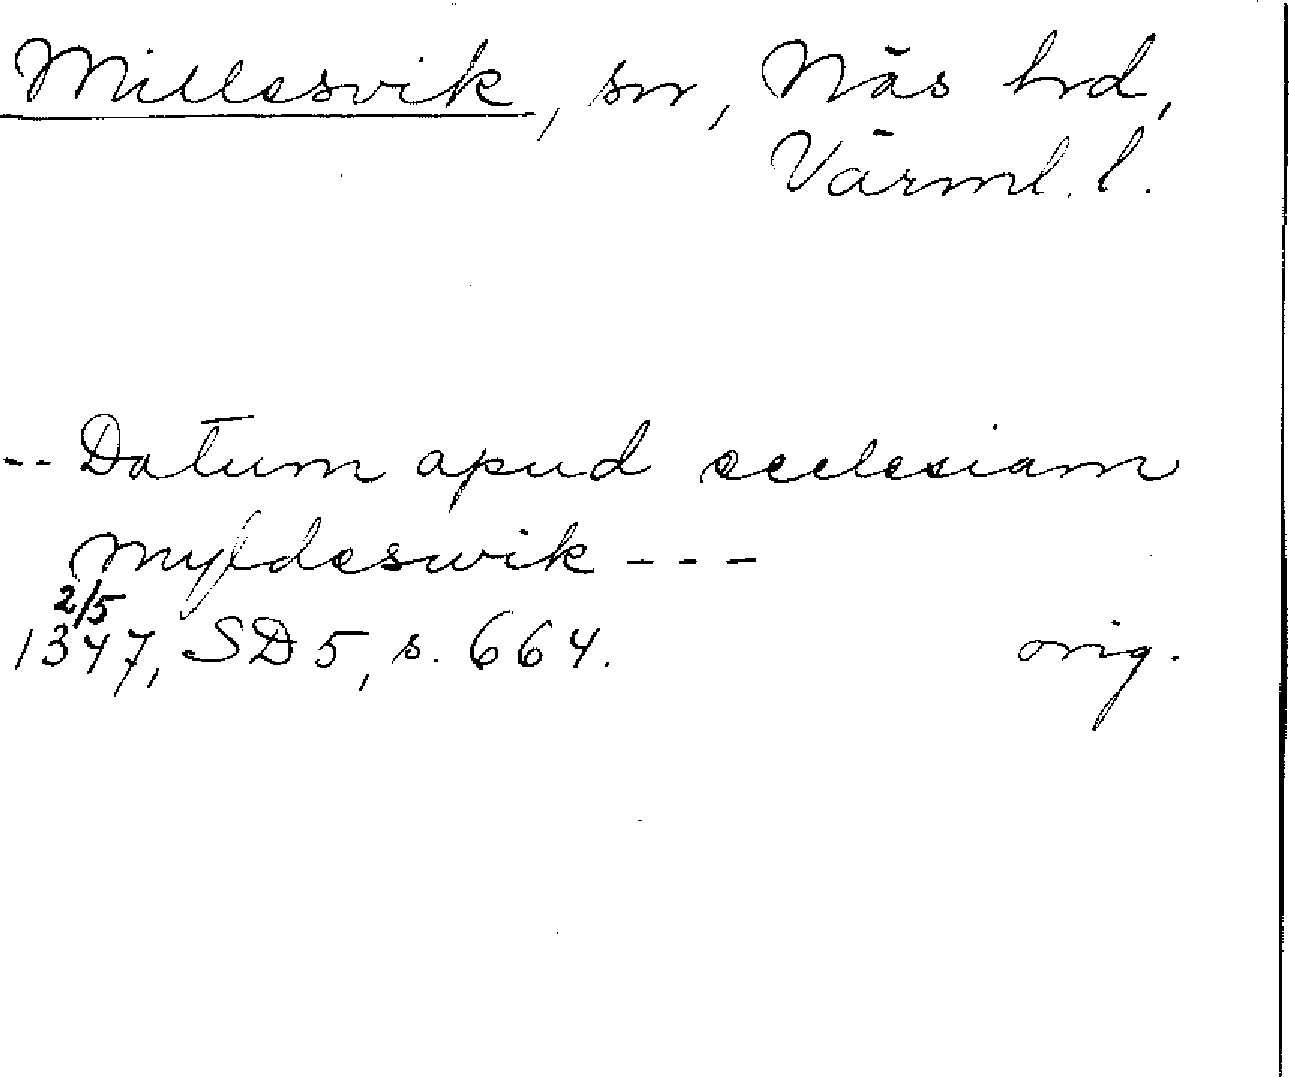 Millesvik, sn, Näs hrd,
Värml. l.
-- Datum apud ecclesiam
myldeswik ---
2/5
1347, SD 5, s. 664. orig.